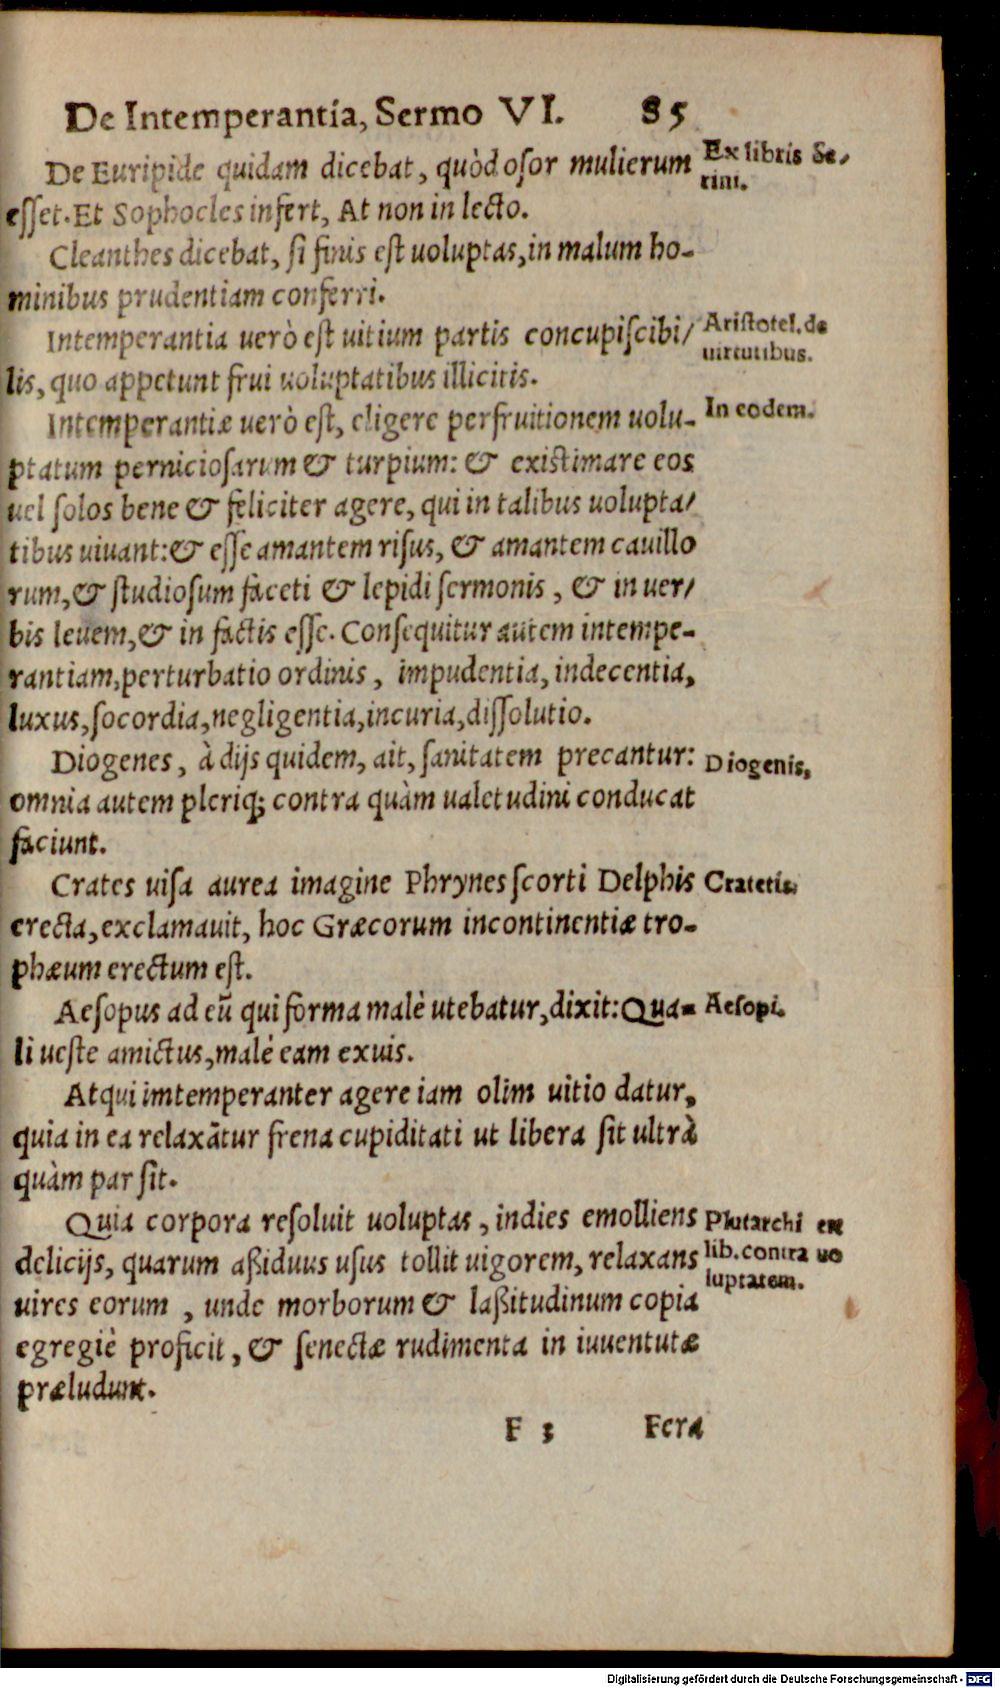 De Intemperantia, Sermo VI. 85
De Euripide quidam dicebat, quòd osor mulierum
esset. Et Sophocles infert, At non in lecto.
Ex libris Se/
rini.
Cleanthes dicebat, si finis est uoluptas, in malum ho-
minibus prudentiam conferri.
Intemperantia verò est uitium partis concupiscibi/
lis, quo appetunt frui uoluptatibus illicitis.
Aristotel. de
uirtutibus.
Intemperantiæ verò est, eligere perfruitionem uolu-
ptatum perniciosarum & turpium: & existimare eos
uel solos bene & feliciter agere, qui in talibus uolupta/
tibus uiuant: & esse amantem risus, & amantem cauillo
rum, & studiosum faceti & lepidi sermonis, & in uer/
bis leuem, & in factis esse. Consequitur autem intempe-
rantiam, perturbatio ordinis, impudentia, indecentia,
luxus, socordia, negligentia, incuria, dissolutio.
In eodem.
Diogenes, à dijs quidem, ait, sanitatem precantur:
omnia autem pleriq; contra quàm ualetudini conducat
faciunt.
Diogenis,
Crates uisa aurea imagine Phrynes scorti Delphis
erecta, exclamauit, hoc Græcorum incontinentiæ tro-
phæum erectum est.
Cratetis.
Aesopus ad eũ qui forma malè utebatur, dixit: Qua-
li ueste amictus, malé eam exuis.
Aesopi.
Atqui imtemperanter agere iam olim uitio datur,
quia in ea relaxãtur frena cupiditati ut libera sit ultrà
quàm par sit.
Quia corpora resoluit uoluptas, indies emolliens
delicijs, quarum aßiduus usus tollit uigorem, relaxans
uires eorum, unde morborum & laßitudinum copia
egregiè proficit, & senectæ rudimenta in iuuentutæ
præludunt.
Plutarchi ex
lib. contra uo
luptatem.
F 3 Fera
Digitalisierung gefördert durch die Deutsche Forschungsgemeinschaft - DFG